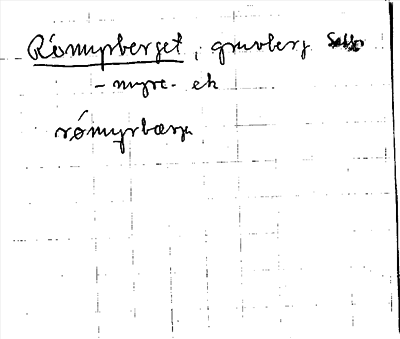 Römyrberget, gruvberg
- myre - ek
römyrbærje